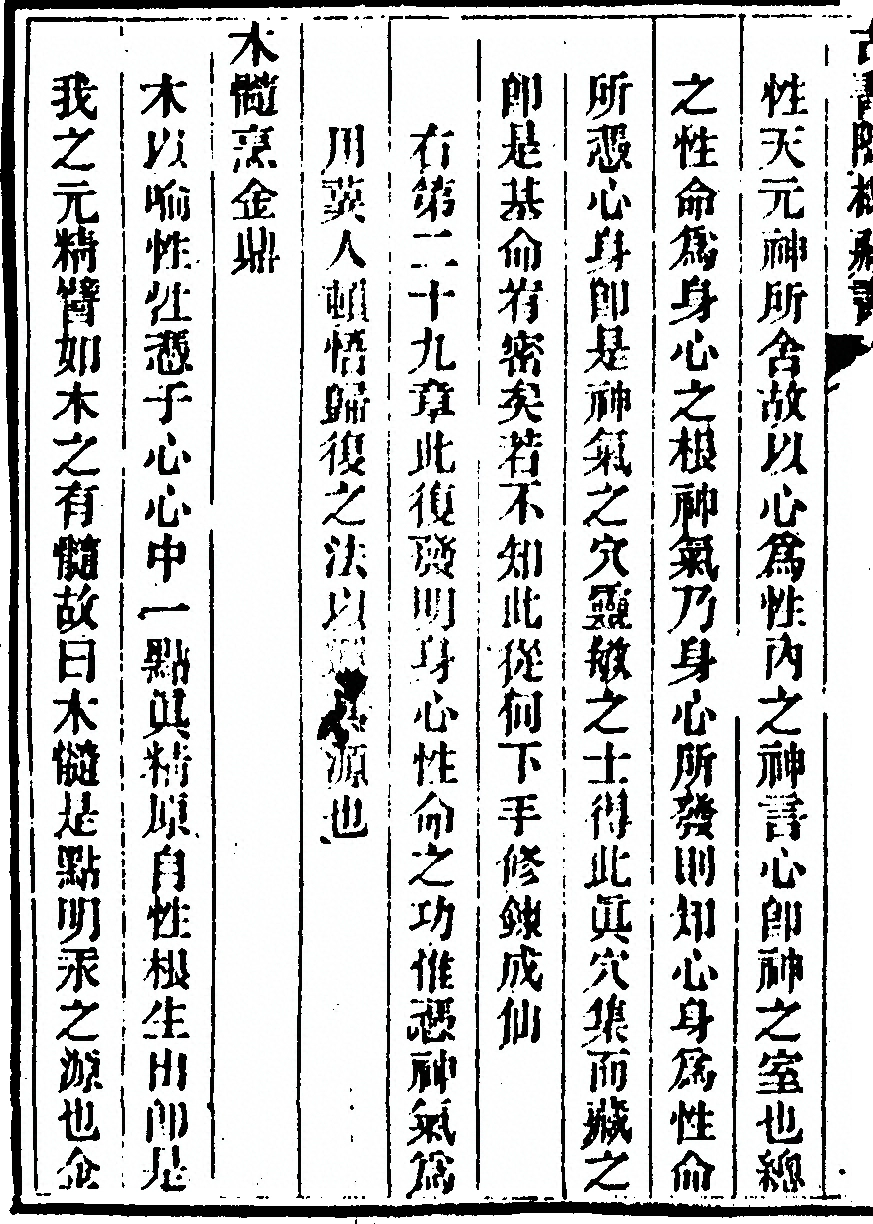 性天元神所舍故以心爲性內之神言心卽神之室也總
之性命爲身心之根神氣乃身心所發則知心身爲性命
所憑心身卽是神氣之穴靈敏之士得此眞穴集而藏之
卽是基命宥密矣若不知此從何下手修鍊成仙
右第二十九章此復發明身心性命之功惟憑神氣爲
用英人頓悟歸復之法以源也
木髓烹金鼎
木以喻性性憑于心心中一點眞精原自性根生出卽是
我之元精譬如木之有髓故曰木髓是點明汞之源也金